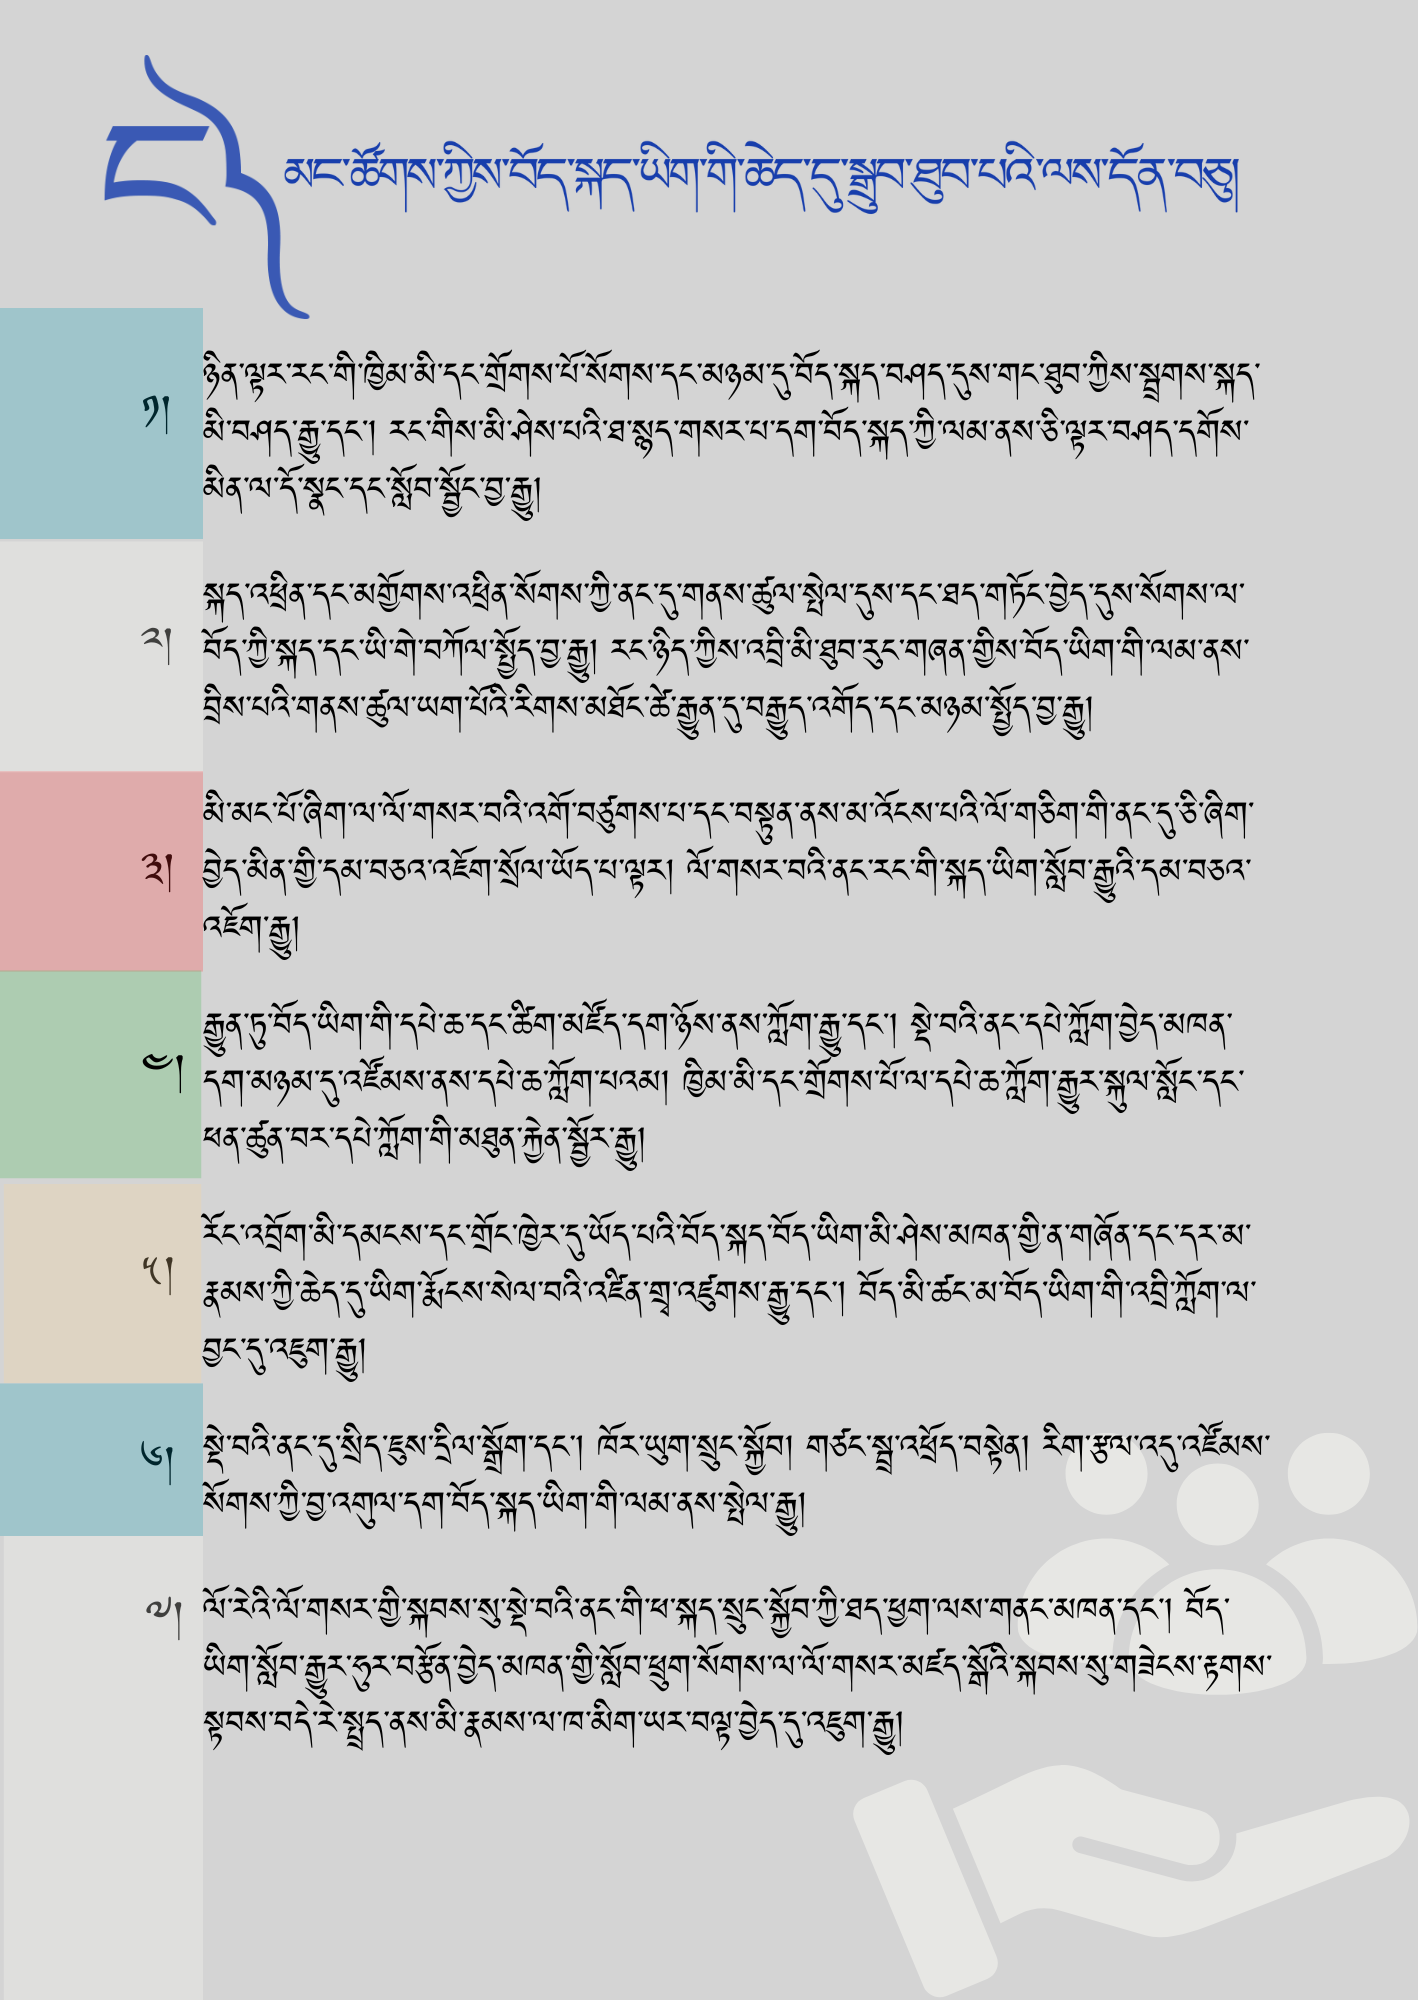 ང༽ མང་ཚོགས་ཀྱིས་བོད་སྐད་ཡིག་གི་ཆེད་དུ་སྒྲུབ་ཐུབ་པའི་ལས་དོན་བཅུ།
༡། ཉིན་ལྟར་རང་གི་ཁྱིམ་མི་དང་གྲོགས་པོ་སོགས་དང་མཉམ་དུ་བོད་སྐད་བཤད་དུས་གང་ཐུབ་ཀྱིས་སྦྲགས་སྐད་
མི་བཤད་རྒྱུ་དང་། རང་གིས་མི་ཤེས་པའི་ཐ་སྙད་གསར་པ་དག་བོད་སྐད་ཀྱི་ལམ་ནས་ཅི་ལྟར་བཤད་དགོས་
མིན་ལ་དོ་སྣང་དང་སློབ་སྦྱོང་བྱ་རྒྱུ།
༢། སྐད་འཕྲིན་དང་མགྱོགས་འཕྲིན་སོགས་ཀྱི་ནང་དུ་གནས་ཚུལ་སྤེལ་དུས་དང་ཐད་གཏོང་བྱེད་དུས་སོགས་ལ་
བོད་ཀྱི་སྐད་དང་ཡི་གེ་བཀོལ་སྤྱོད་བྱ་རྒྱུ། རང་ཉིད་ཀྱིས་འབྲི་མི་ཐུབ་རུང་གཞན་གྱིས་བོད་ཡིག་གི་ལམ་ནས་
བྲིས་པའི་གནས་ཚུལ་ཡག་པོའི་རིགས་མཐོང་ཚེ་རྒྱུན་དུ་བརྒྱུད་འགོད་དང་མཉམ་སྤྱོད་བྱ་རྒྱུ།
༣། མི་མང་པོ་ཞིག་ལ་ལོ་གསར་བའི་འགོ་བཙུགས་པ་དང་བསྟུན་ནས་མ་འོངས་པའི་ལོ་གཅིག་གི་ནང་དུ་ཅི་ཞིག་
བྱེད་མིན་གྱི་དམ་བཅའ་འཇོག་སྲོལ་ཡོད་པ་ལྟར། ལོ་གསར་བའི་ནང་རང་གི་སྐད་ཡིག་སློབ་རྒྱུའི་དམ་བཅའ་
འཇོག་རྒྱུ།
༤། རྒྱུན་ཏུ་བོད་ཡིག་གི་དཔེ་ཆ་དང་ཚིག་མཛོད་དག་ཉོས་ནས་ཀློག་རྒྱུ་དང་། སྡེ་བའི་ནང་དཔེ་ཀློག་བྱེད་མཁན་
དག་མཉམ་དུ་འཛོམས་ནས་དཔེ་ཆ་ཀློག་པའམ། ཁྱིམ་མི་དང་གྲོགས་པོ་ལ་དཔེ་ཆ་ཀློག་རྒྱུར་སྐུལ་སློང་དང་
ཕན་ཚུན་བར་དཔེ་ཀློག་གི་མཐུན་རྐྱེན་སྦྱོར་རྒྱུ།
༥། རོང་འབྲོག་མི་དམངས་དང་གྲོང་ཁྱེར་དུ་ཡོད་པའི་བོད་སྐད་བོད་ཡིག་མི་ཤེས་མཁན་གྱི་ན་གཞོན་དང་དར་མ་
རྣམས་ཀྱི་ཆེད་དུ་ཡིག་རྨོངས་སེལ་བའི་འཛིན་གྲྭ་འཛུགས་རྒྱུ་དང་། བོད་མི་ཚང་མ་བོད་ཡིག་གི་འབྲི་ཀློག་ལ་
བྱང་དུ་འཇུག་རྒྱུ།
༦། སྡེ་བའི་ནང་དུ་སྲིད་ཇུས་དྲིལ་སྒྲོག་དང་། ཁོར་ཡུག་སྲུང་སྐྱོབ། གཙང་སྦྲ་འཕྲོད་བསྟེན། རིག་རྩལ་འདུ་འཛོམས་
སོགས་ཀྱི་བྱ་འགུལ་དག་བོད་སྐད་ཡིག་གི་ལམ་ནས་སྤེལ་རྒྱུ།
༧། ལོ་རེའི་ལོ་གསར་གྱི་སྐབས་སུ་སྡེ་བའི་ནང་གི་ཕ་སྐད་སྲུང་སྐྱོབ་ཀྱི་ཐད་ཕྱག་ལས་གནང་མཁན་དང་། བོད་
ཡིག་སློབ་རྒྱུར་ཧུར་བརྩོན་བྱེད་མཁན་གྱི་སློབ་ཕྲུག་སོགས་ལ་ལོ་གསར་མཛད་སྒོའི་སྐབས་སུ་གཟེངས་རྟགས་
སྟབས་བདེ་རེ་སྤྲད་ནས་མི་རྣམས་ལ་ཁ་མིག་ཡར་བལྟ་བྱེད་དུ་འཇུག་རྒྱུ།